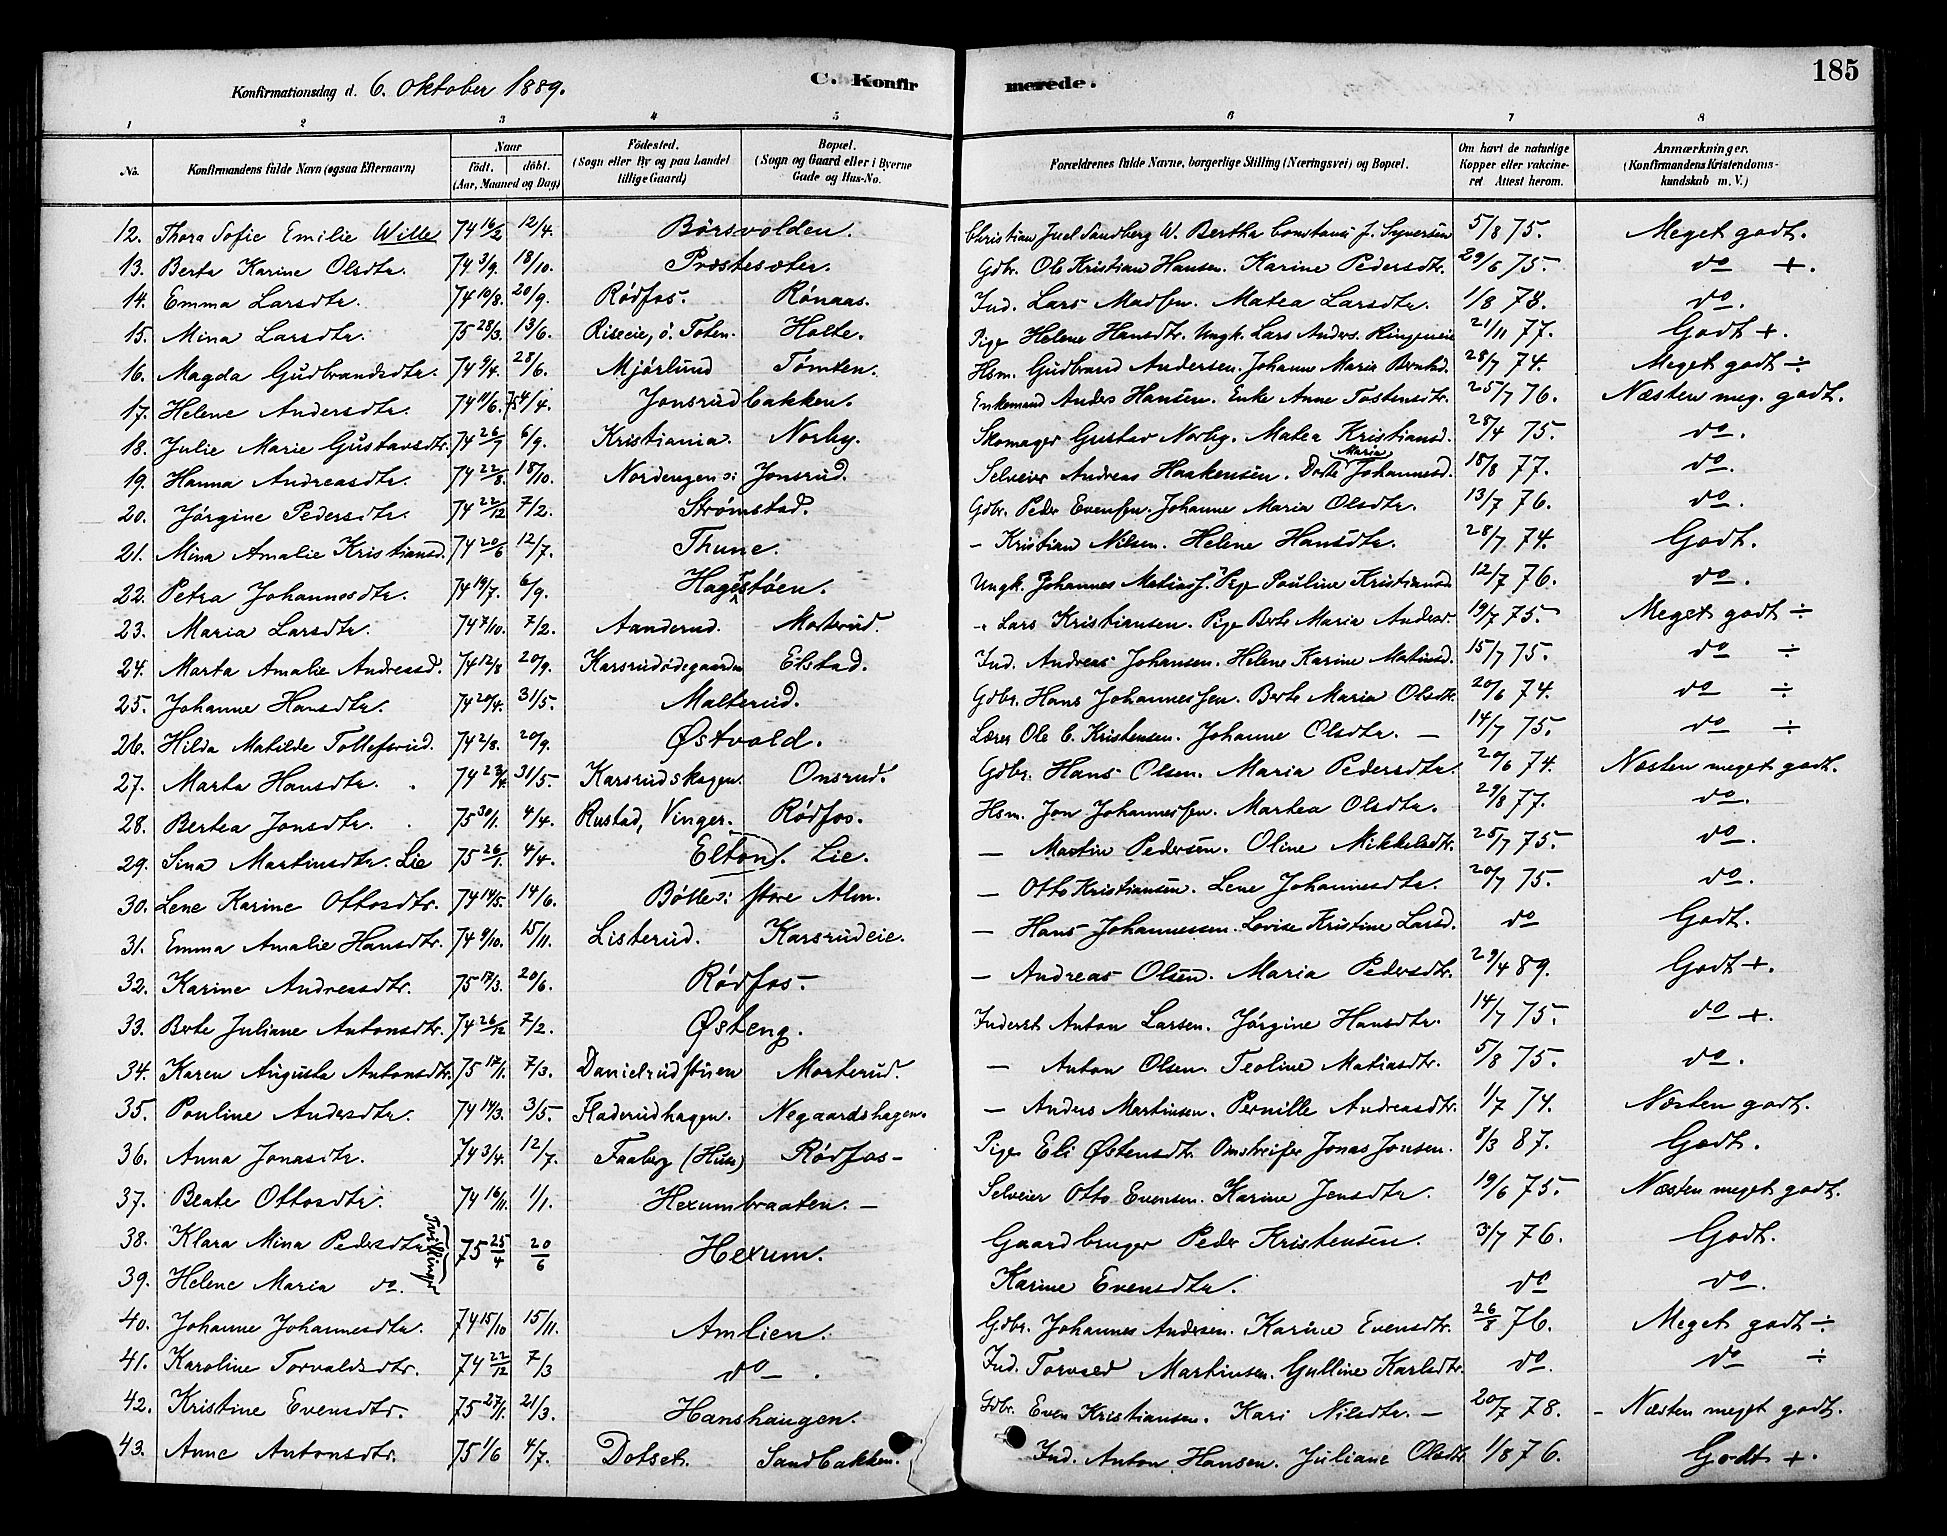 Konfirmationsdag d. 6. oktober 1889. C. Konfirmerede. 185
1 2 3 4 5 6 7 8
No. Konfirmandens fulde Navn (ogsaa Efternavn) Naar født. døbt. (Aar, Maaned og Dag) Fødested. (Sogn eller By og paa Landet tillige Gaard) Bopæl. (Sogn og Gaard eller i Byerne Gade og Hus-No. Forældrenes fulde Navne, borgerlige Stilling (Næringsvei) og Bopæl. Om havt de naturlige Kopper eller vakcineret Attest herom. Anmærkninger. (Konfirmandens Kristendomskundskab m. V.)
12. Thora Sofie Emilie Wille 74 16/2 12/4. Børsvolden. Christian Juel Sandberg W. Bertha Constance f. Syversen 5/8 75. Meget godt.
13. Berta Karine Olsdtr. 74 3/9. 18/10. Præstesæter. Gdbr. Ole Kristian Hansen. Karine Pedersdtr. 29/6 75. do +.
14. Emma Larsdtr. 74 10/8. 20/9. Rødfos. Rønaas. Ind. Lars Madsen. Matea Larsdtr. 1/8 78. do.
15. Mina Larsdtr. 75 28/3. 13/6. Riseeie, ö. Toten. Holte. Pige Helene Hansdtr. Ungk. Lars Anders. Ringeneie 21/11 77. Godt +.
16. Magda Gudbrandsdtr. 74 9/4. 28/6. Mjørlund Tømten. Hsm. Gudbrand Andersen. Johanne Maria Berntsd. 28/7 74. Meget godt ÷
17. Helene Andersdtr. 74 11/6. 75 4/4. Jonsrudbakken. Enkemand Anders Hansen. Enke Anne Tostensdtr. 25/7 76. Næsten meg. godt.
18. Julie Marie Gustavsdtr. 74 26/7 6/9. Kristiania. Norby. Skomager Gustav Norby. Matea Kristiansd. 28/4 75. do.
19. Hanna Andreasdtr. 74 22/8. 18/10. Nordengen: Jonsrud. Selveier Andreas Haakensen. Dorte Maria Johannesd. 18/8 77. do.
20. Jörgine Pedersdtr. 74 22/12 7/2. Strømstad. Gdbr. Peder Evensen. Johanne Maria Olsdtr. 13/7 76. do.
21. Mina Amalie Kristiansd. 74 20/6 12/7. Thune. - Kristian Nilsen. Helene Hansdtr. 28/7 74. Godt.
22. Petra Johannesdtr. 74 19/7. 6/9. Hagestöen. Ungk. Johannes Matias. Pige Pauline Kristiansd 12/7 76. do.
23. Maria Larsdtr. 74 7/10. 7/2. Aanderud. Morterud. " Lars Kristiansen. Pige Berte Maria Andersd. 19/7 75. Meget godt ÷
24. Marta Amalie Andreasd. 74 12/8 20/9. Karsrudødegaarden Eilstad. Ind. Andreas Johansen. Helene Karine Matiasd. 15/7 75. do ÷
25. Johanne Hansdtr. 74 20/4. 31/5. Malterud. Gdbr. Hans Johannessen. Berte Maria Olsdtr. 20/6 74. do ÷
26. Hilda Matilde Tollefsrud. 74 2/8. 20/9. Østvold. Lærer Ole C. Kristensen. Johanne Olsdtr. - 14/7 75. do ÷
27. Marta Hansdtr. 74 23/4. 31/5. Karsrudskagen. Onsrud. Gdbr. Hans Olsen. Maria Pedersdtr. 20/6 74. Næsten meget godt.
28. Bertea Jonsdtr. 75 30/1. 4/4. Rustad, Vinger. Rødfos. Hsm. Jon Johannessen. Martea Olsdtr. 29/8 77. do.
29. Sina Martinsdtr. Lie 75 26/1. 4/4. Elton. Lie. - Martin Pedersen. Oline Mikkelsdtr. 25/7 75. do.
30. Lene Karine Ottosdtr. 74 14/5. 14/6. Bølle: store Alm. - Otto Kristiansen. Lene Johannesdtr. 20/7 75. do.
31. Emma Amalie Hansdtr. 74 9/10. 15/11. Listerud. Karsrudeie. - Hans Johannessen. Lovise Kristine Larsd. do Godt.
32. Karine Andreasdtr. 75 17/3. 20/6. Rødfos. - Andreas Olsen. Maria Pedersdtr. 29/4 89. Godt +.
33. Berte Juliane Antonsdtr. 74 26/12 7/2. Østeng. Inderst Anton Larsen. Jörgine Hansdtr. 14/7 75. do +.
34. Karen Augusta Antonsdtr. 75 17/1. 7/3. Danielrudstuen Morterud. - Anton Olsen. Teoline Matiasdtr. 5/8 75. do.
35. Pouline Andersdtr. 74 14/3. 3/5. Fladerudhagen. Negaardshagen. - Anders Martinsen. Pernille Andreasdtr. 1/7 74. Næsten godt.
36. Anna Jonasdtr. 74 3/4. 12/7. Faaberg (Huse) Rødfos- Pige Eli Østensdtr. Omstreifer Jonas Jonsen. 8/3 87. Godt.
37. Beate Ottosdtr. 74 16/11. 1/1. Hexumbraaten. - Selveier Otto Evensen. Karine Jensdtr. 19/6 75. Næsten meget godt.
38. Klara Mina Pedersdtr. Tvillinger 75 25/4 20/6 Hexum. Gaardbruger Peder Kristensen. 3/7 76. Godt.
39. Helene Maria do. Karine Evensdtr. do do.
40. Johanne Johannesdtr. 74 15/10 15/11. Amlien. Gdbr. Johannes Andersen. Karine Evensdtr. 26/8 76. Meget godt ÷
41. Karoline Torvaldsdtr. 74 22/12 7/3 do. Ind. Torvald Martinsen. Gulline Karlsdtr. do. do ÷
42. Kristine Evensdtr. 75 27/1. 21/3. Hanshaugen. Gdbr. Even Kristiansen. Kari Nilsdtr. - 20/7 78. - Næsten meget godt.
43. Anne Antonsdtr. 75 1/6 4/7. Dotset. Sandbakken. Ind. Anton Hansen. Juliane Olsdtr. 1/8 76. Godt +.